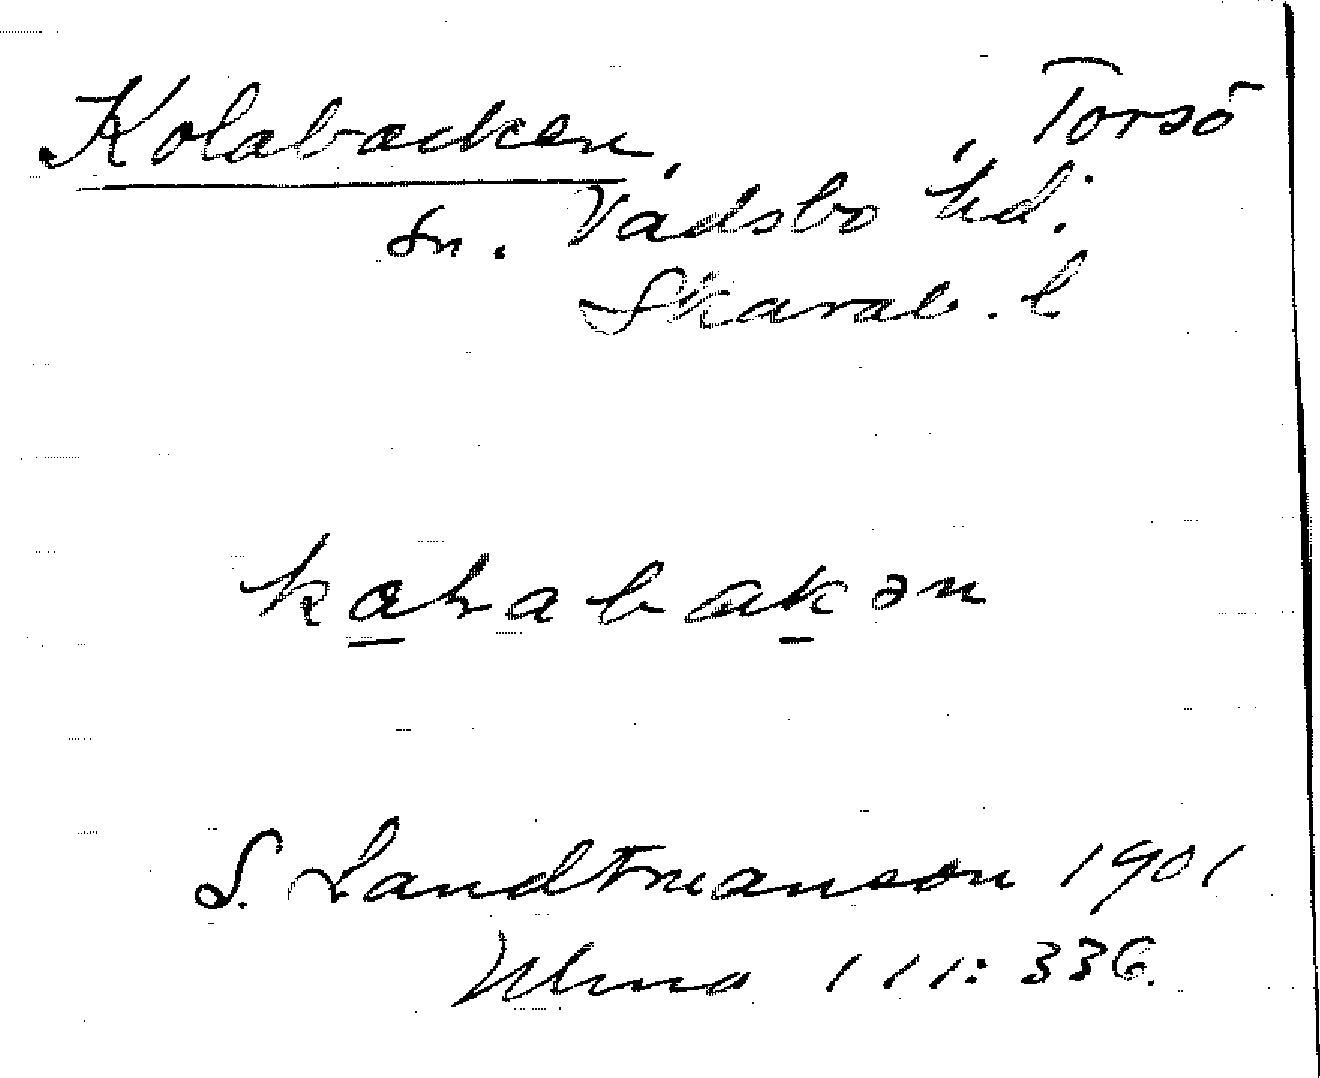 Kolabacken, , Torsö
sn. Vadsbo hd.
Skarab. l
S. Landtmanson 1901
Ulma 111:336.